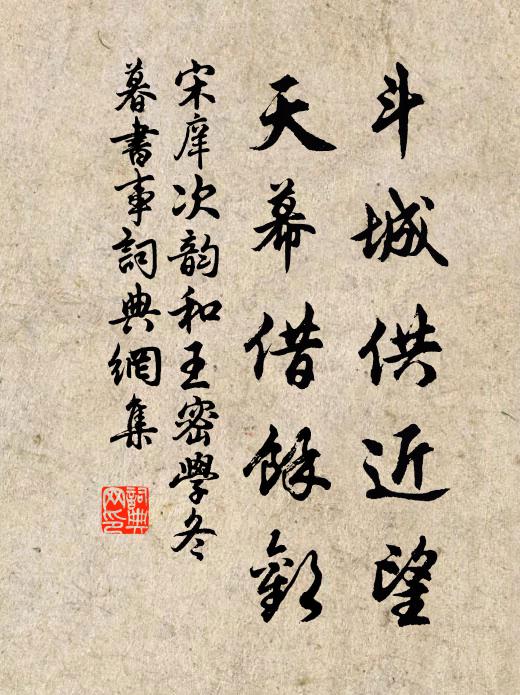 斗城供近望
天幕借餘歡
宋庠次韵和王密學冬
暮書事詞典網集
詞典网印